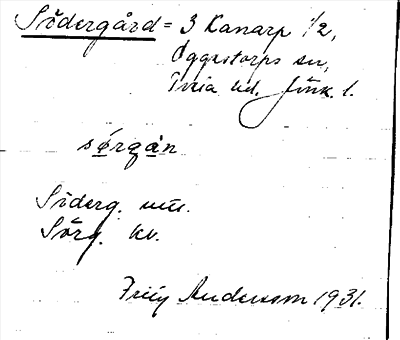 Södergård = 3 Kanarp 1/2,
Öggestorps sn,
Tveta hd. Jönk. l.
sǿrgạn
Söderg. mtl.
Sörg. kv.
Frity Andersson 1931.